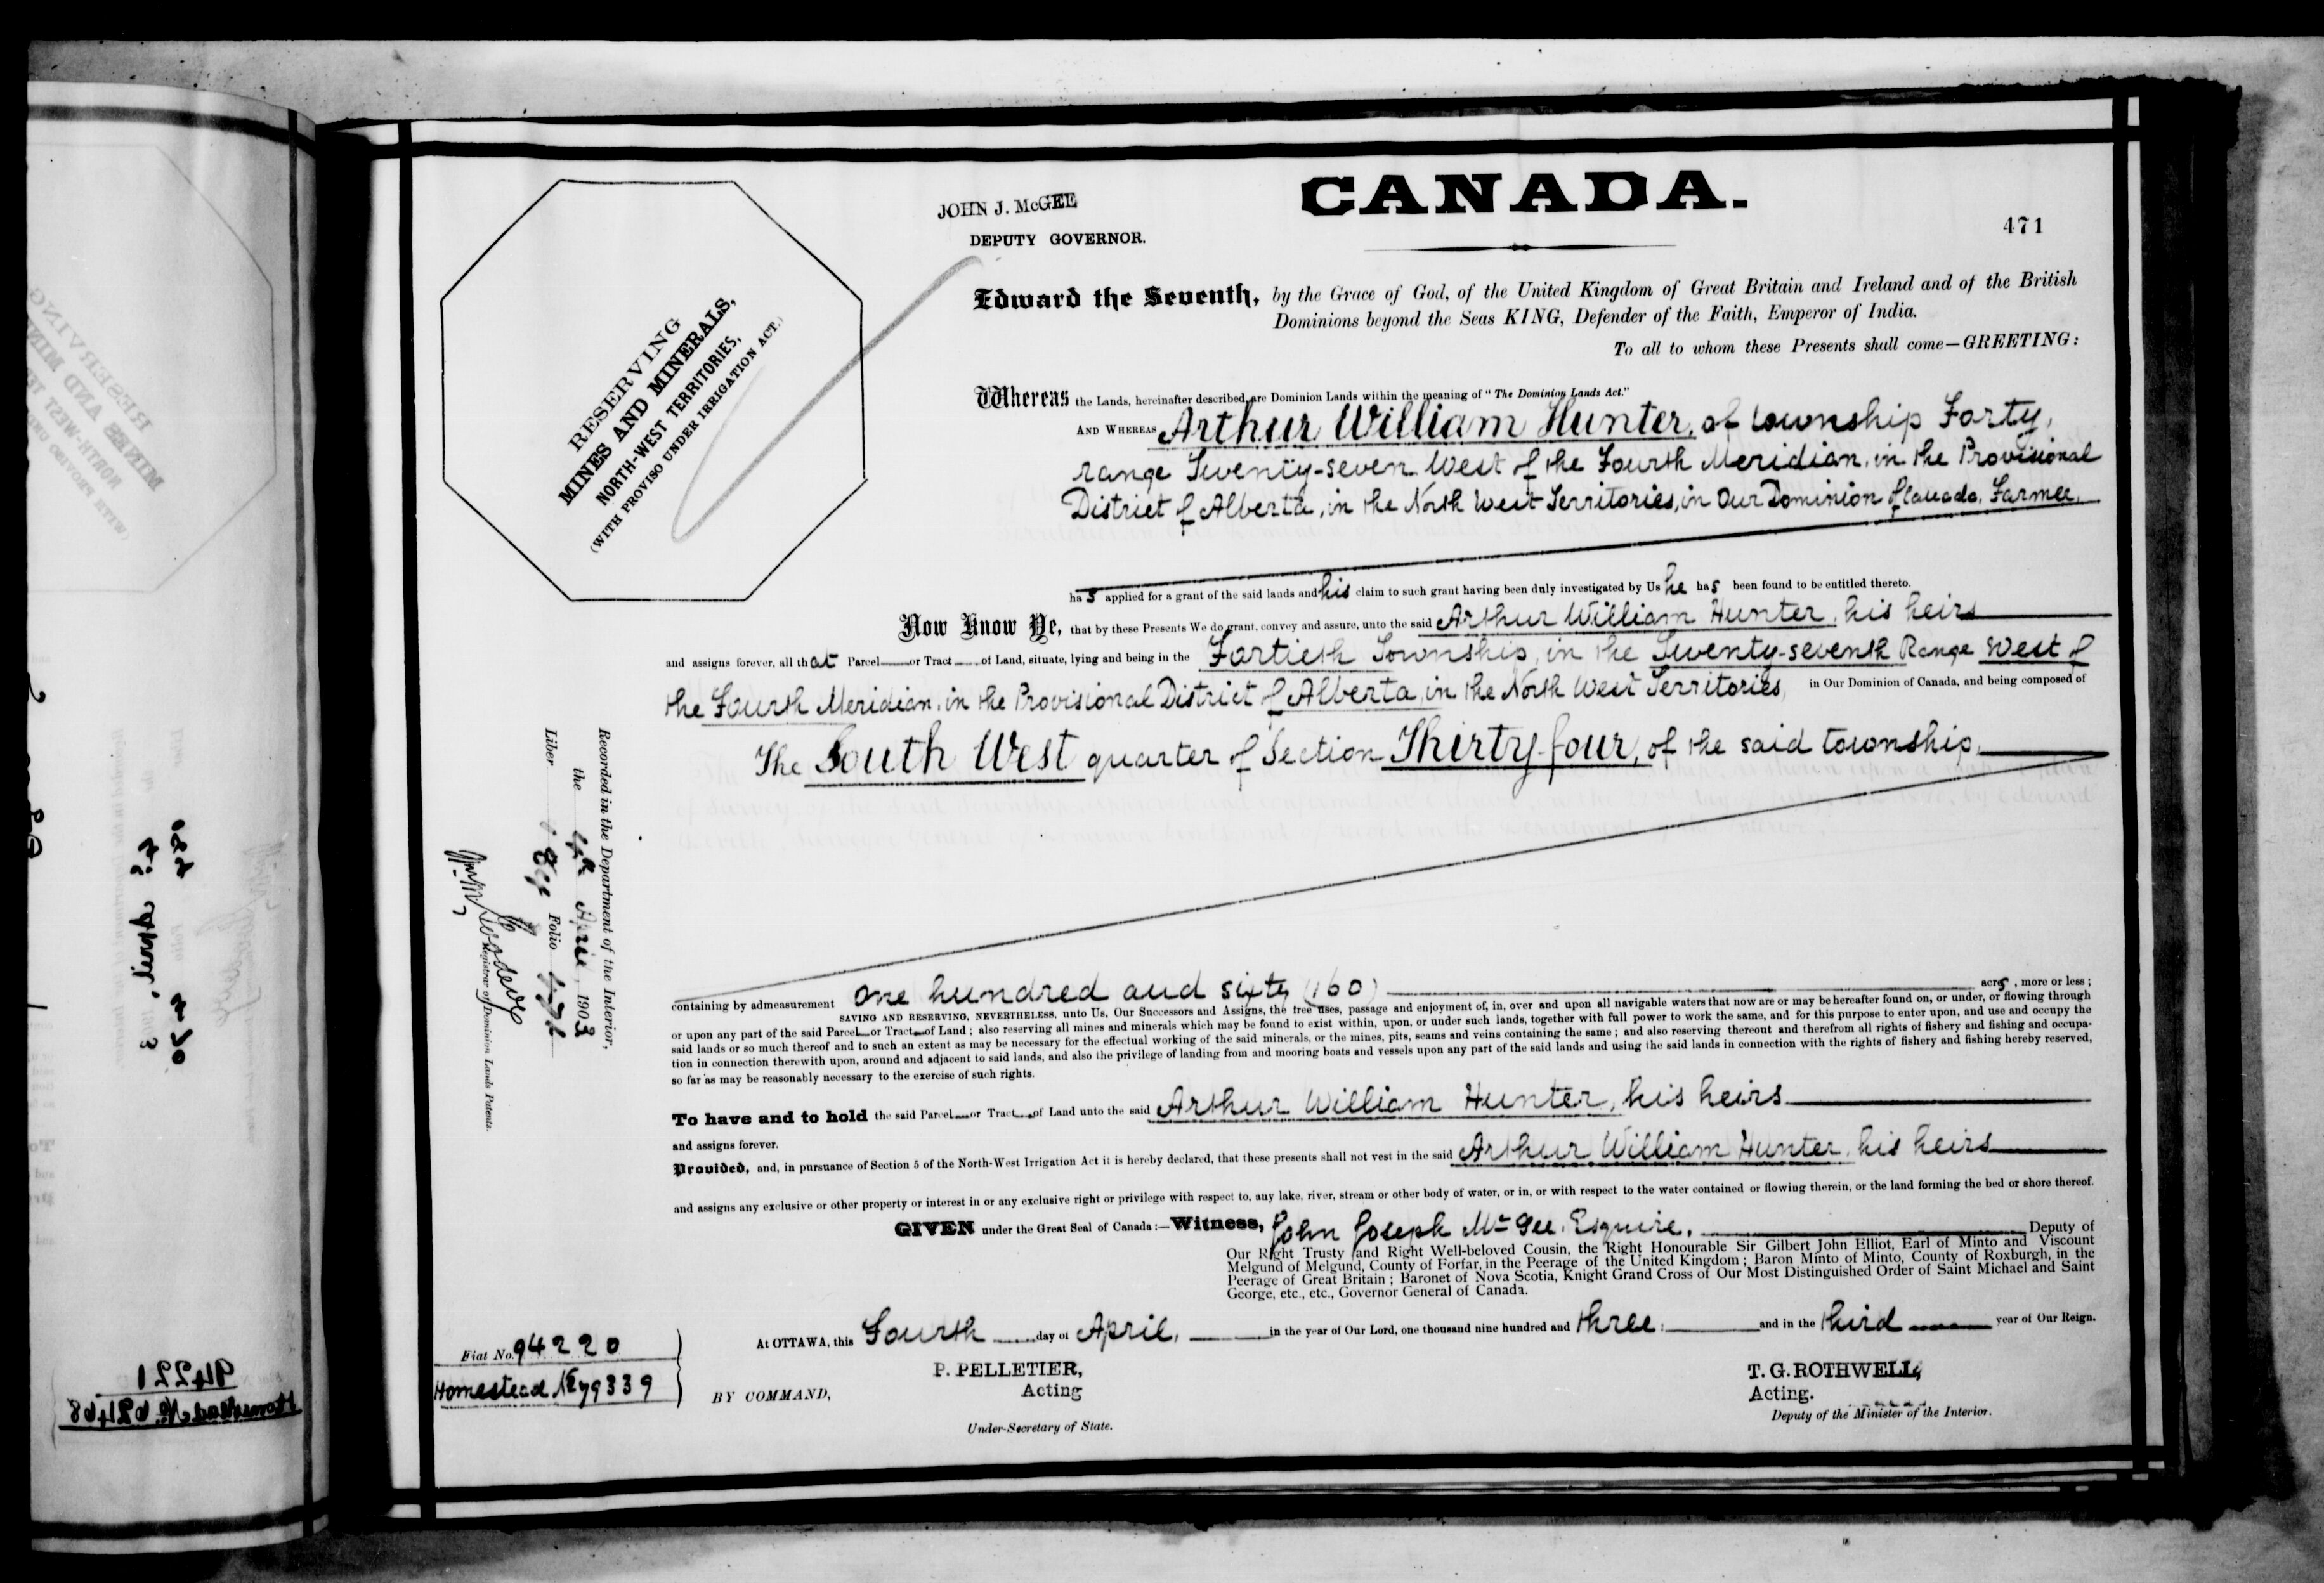 CANADA.
471
JOHN J. McGEE
DEPUTY GOVERNOR.
RESERVING
MINES AND MINERALS,
NORTH-WEST TERRITORIES,
(WITH PROVISO UNDER IRRIGATION ACT.)
Edward the Seventh, by the Grace of God, of the United Kingdom of Great Britain and Ireland and of the British
Dominions beyond the Seas KING, Defender of the Faith, Emperor of India.
To all to whom these Presents shall come—GREETING:
Whereas the Lands, hereinafter described, are Dominion Lands within the meaning of "The Dominion Lands Act."
AND WHEREAS Arthur William Hunter, of township Forty,
range Twenty-seven West of the Fourth Meridian, in the Provisional
District of Alberta, in the North West Territories, in Our Dominion of Canada, Farmer,
has applied for a grant of the said lands and his claim to such grant having been duly investigated by Us he has been found to be entitled thereto.
Now Know Ye, that by these Presents We do grant, convey and assure, unto the said Arthur William Hunter, his heirs
and assigns forever, all that Parcel or Tract of Land, situate, lying and being in the Fortieth Township, in the Twenty-seventh Range West of
the Fourth Meridian, in the Provisional District of Alberta, in the North West Territories, in Our Dominion of Canada, and being composed of
The South West quarter of Section Thirty-four, of the said township,
containing by admeasurement one hundred and sixty (160) acres, more or less;
SAVING AND RESERVING, NEVERTHELESS, unto Us, Our Successors and Assigns, the free uses, passage and enjoyment of, in, over and upon all navigable waters that now are or may be hereafter found on, or under, or flowing through
or upon any part of the said Parcel or Tract of Land; also reserving all mines and minerals which may be found to exist within, upon, or under such lands, together with full power to work the same, and for this purpose to enter upon, and use and occupy the
said lands or so much thereof and to such an extent as may be necessary for the effectual working of the said minerals, or the mines, pits, seams and veins containing the same; and also reserving thereout and therefrom all rights of fishery and fishing and occupa-
tion in connection therewith upon, around and adjacent to said lands, and also the privilege of landing from and mooring boats and vessels upon any part of the said lands and using the said lands in connection with the rights of fishery and fishing hereby reserved,
so far as may be reasonably necessary to the exercise of such rights.
To have and to hold the said Parcel or Tract of Land unto the said Arthur William Hunter, his heirs
and assigns forever.
Provided, and, in pursuance of Section 5 of the North-West Irrigation Act it is hereby declared, that these presents shall not vest in the said Arthur William Hunter, his heirs
and assigns any exclusive or other property or interest in or any exclusive right or privilege with respect to, any lake, river, stream or other body of water, or in, or with respect to the water contained or flowing therein, or the land forming the bed or shore thereof.
GIVEN under the Great Seal of Canada:—Witness, John Joseph McGee, Esquire, Deputy of
Our Right Trusty and Right Well-beloved Cousin, the Right Honourable Sir Gilbert John Elliot, Earl of Minto and Viscount
Melgund of Melgund, County of Forfar, in the Peerage of the United Kingdom; Baron Minto of Minto, County of Roxburgh, in the
Peerage of Great Britain; Baronet of Nova Scotia, Knight Grand Cross of Our Most Distinguished Order of Saint Michael and Saint
George, etc., etc., Governor General of Canada.
At OTTAWA, this Fourth day of April, in the year of Our Lord, one thousand nine hundred and three, and in the third year of Our Reign.
BY COMMAND,
P. PELLETIER,
Acting
Under-Secretary of State.
T. G. ROTHWELL,
Acting.
Deputy of the Minister of the Interior.
Fiat No. 94220
Homestead No. 79339
Recorded in the Department of the Interior,
the April, 1903
Liber Folio
Registrar of Dominion Lands Patents.
94221